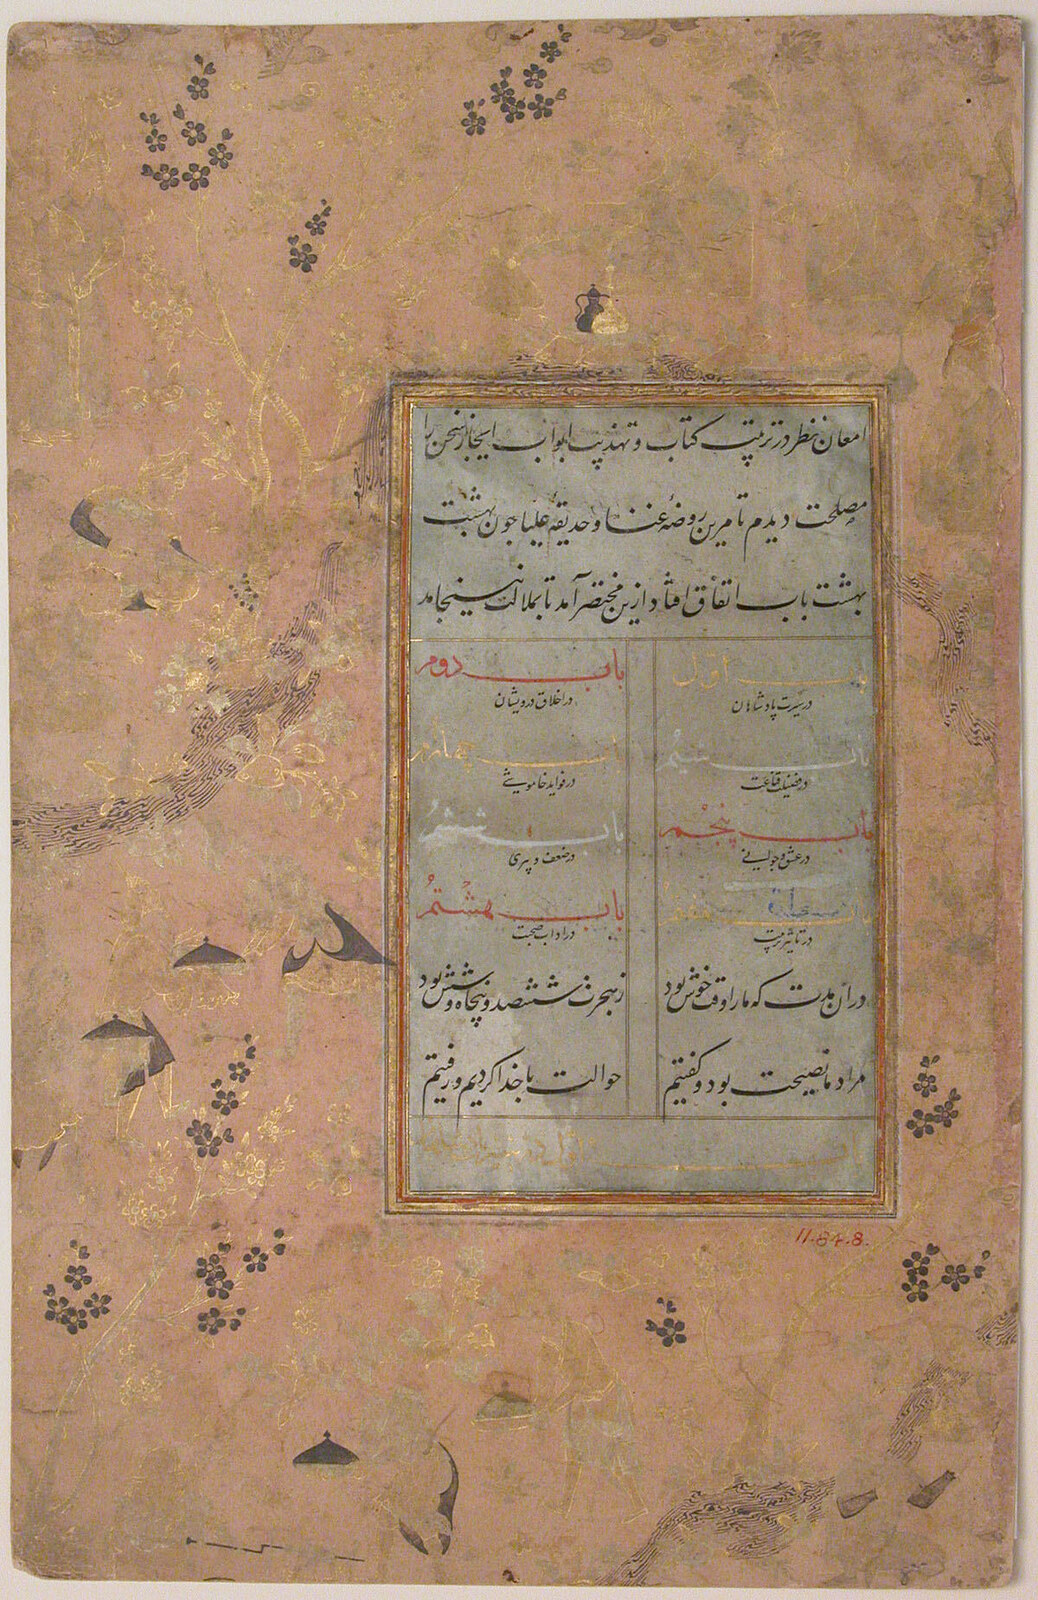 امعان نظر در ترتیب کتاب و تهذیب ابواب ایجاز سخن را
مصلحت دیدم تا مر این روضهٔ غنا و حدیقهٔ علیا چون بهشت
بهشت باب اتفاق افتاد ازین مختصر آمد تا بملالت نینجامد
باب اول باب دوم
در سیرت پادشاهان در اخلاق درویشان
باب سیم باب چهارم
در فضیلت قناعت در فواید خاموشی
باب پنجم باب ششم
در عشق و جوانی در ضعف و پیری
باب هفتم باب هشتم
در تاثیر تربیت در اداب صحبت
در آن مدت که ما را وقت خوش بود ز هجرت ششصد و پنجاه و شش بود
مراد ما نصیحت بود و گفتیم حوالت با خدا کردیم و رفتیم
باب اول در سیرت پادشاهان
11.84.8.